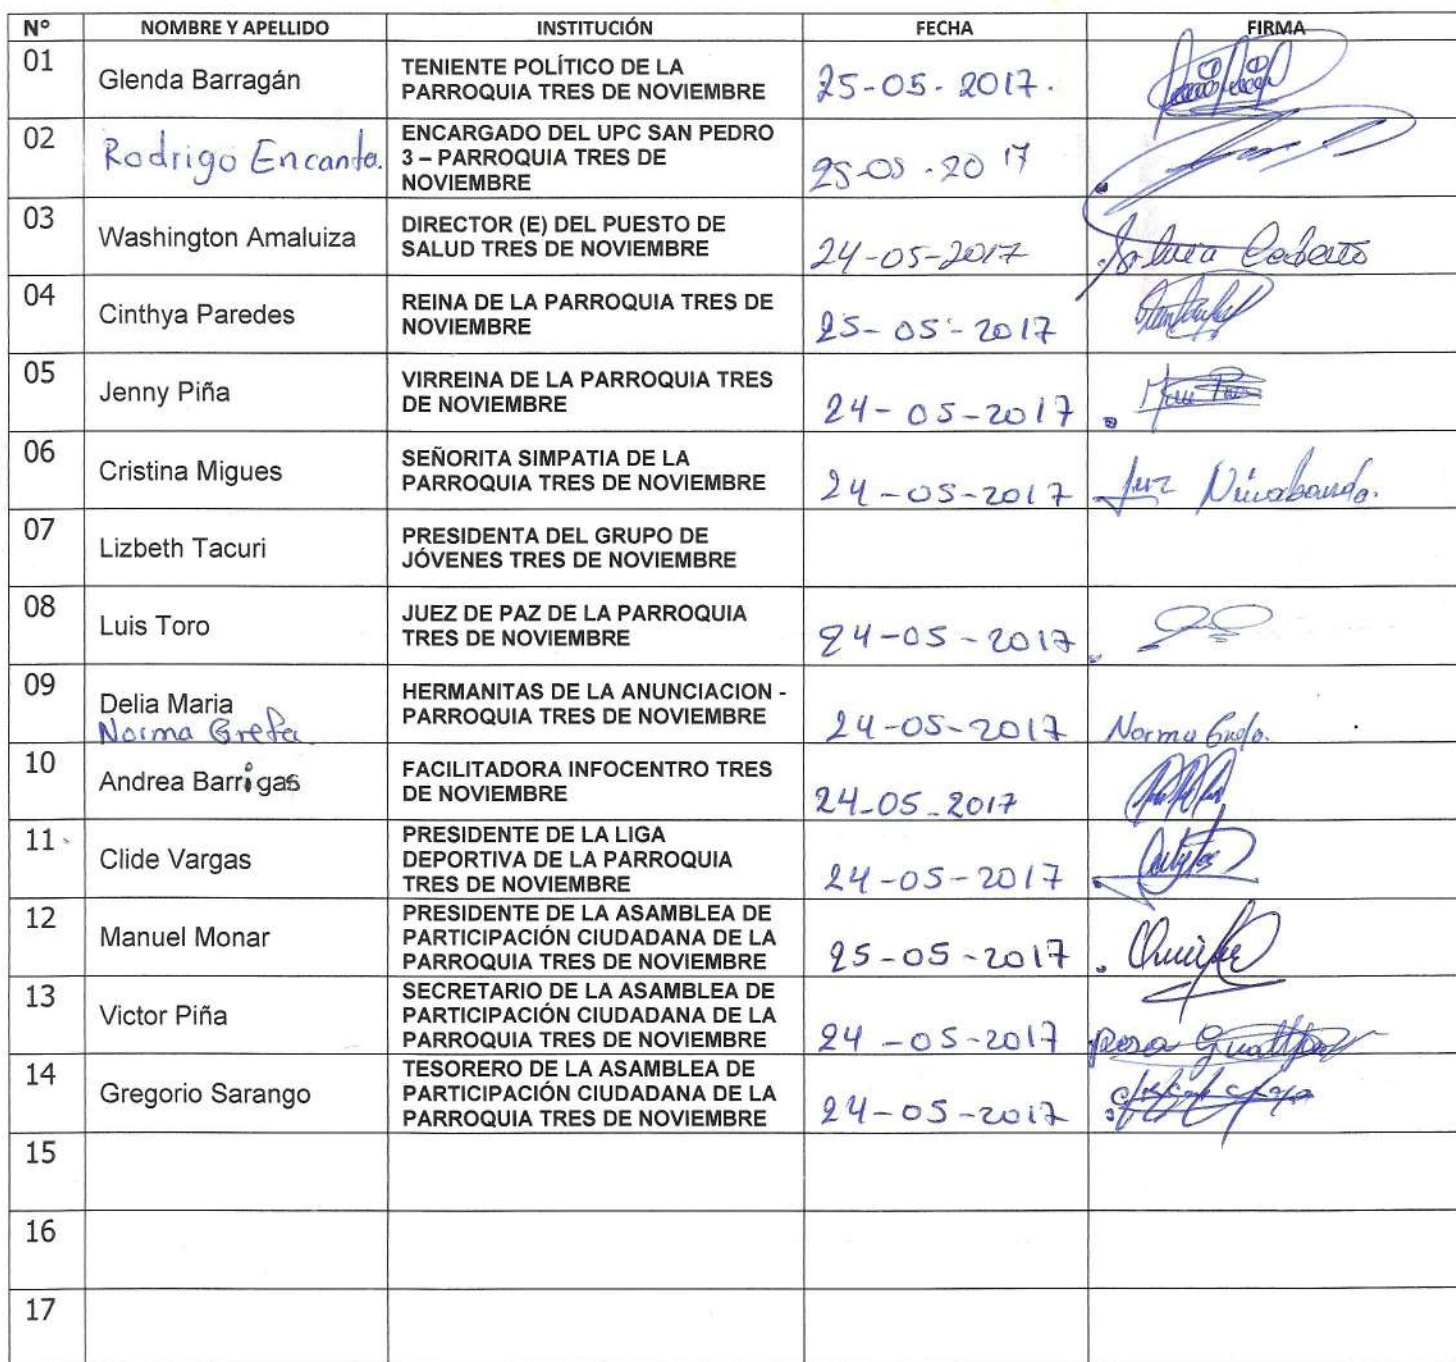 N° NOMBRE Y APELLIDO INSTITUCIÓN FECHA FIRMA
01 Glenda Barragán TENIENTE POLÍTICO DE LA
PARROQUIA TRES DE NOVIEMBRE 25-05-2017.
02 Rodrigo Encanta. ENCARGADO DEL UPC SAN PEDRO
3 – PARROQUIA TRES DE
NOVIEMBRE 25-05-2017
03 Washington Amaluiza DIRECTOR (E) DEL PUESTO DE
SALUD TRES DE NOVIEMBRE 24-05-2017
04 Cinthya Paredes REINA DE LA PARROQUIA TRES DE
NOVIEMBRE 25-05-2017
05 Jenny Piña VIRREINA DE LA PARROQUIA TRES
DE NOVIEMBRE 24-05-2017
06 Cristina Migues SEÑORITA SIMPATIA DE LA
PARROQUIA TRES DE NOVIEMBRE 24-05-2017 Luz
07 Lizbeth Tacuri PRESIDENTA DEL GRUPO DE
JÓVENES TRES DE NOVIEMBRE
08 Luis Toro JUEZ DE PAZ DE LA PARROQUIA
TRES DE NOVIEMBRE 24-05-2017
09 Delia Maria HERMANITAS DE LA ANUNCIACION -
PARROQUIA TRES DE NOVIEMBRE
Norma Grefa 24-05-2017 Norma
10 Andrea Barrigas FACILITADORA INFOCENTRO TRES
DE NOVIEMBRE 24-05-2017
11 Clide Vargas PRESIDENTE DE LA LIGA
DEPORTIVA DE LA PARROQUIA
TRES DE NOVIEMBRE 24-05-2017
12 Manuel Monar PRESIDENTE DE LA ASAMBLEA DE
PARTICIPACIÓN CIUDADANA DE LA
PARROQUIA TRES DE NOVIEMBRE 25-05-2017
13 Victor Piña SECRETARIO DE LA ASAMBLEA DE
PARTICIPACIÓN CIUDADANA DE LA
PARROQUIA TRES DE NOVIEMBRE 24-05-2017 Rosa
14 Gregorio Sarango TESORERO DE LA ASAMBLEA DE
PARTICIPACIÓN CIUDADANA DE LA
PARROQUIA TRES DE NOVIEMBRE 24-05-2017
15
16
17